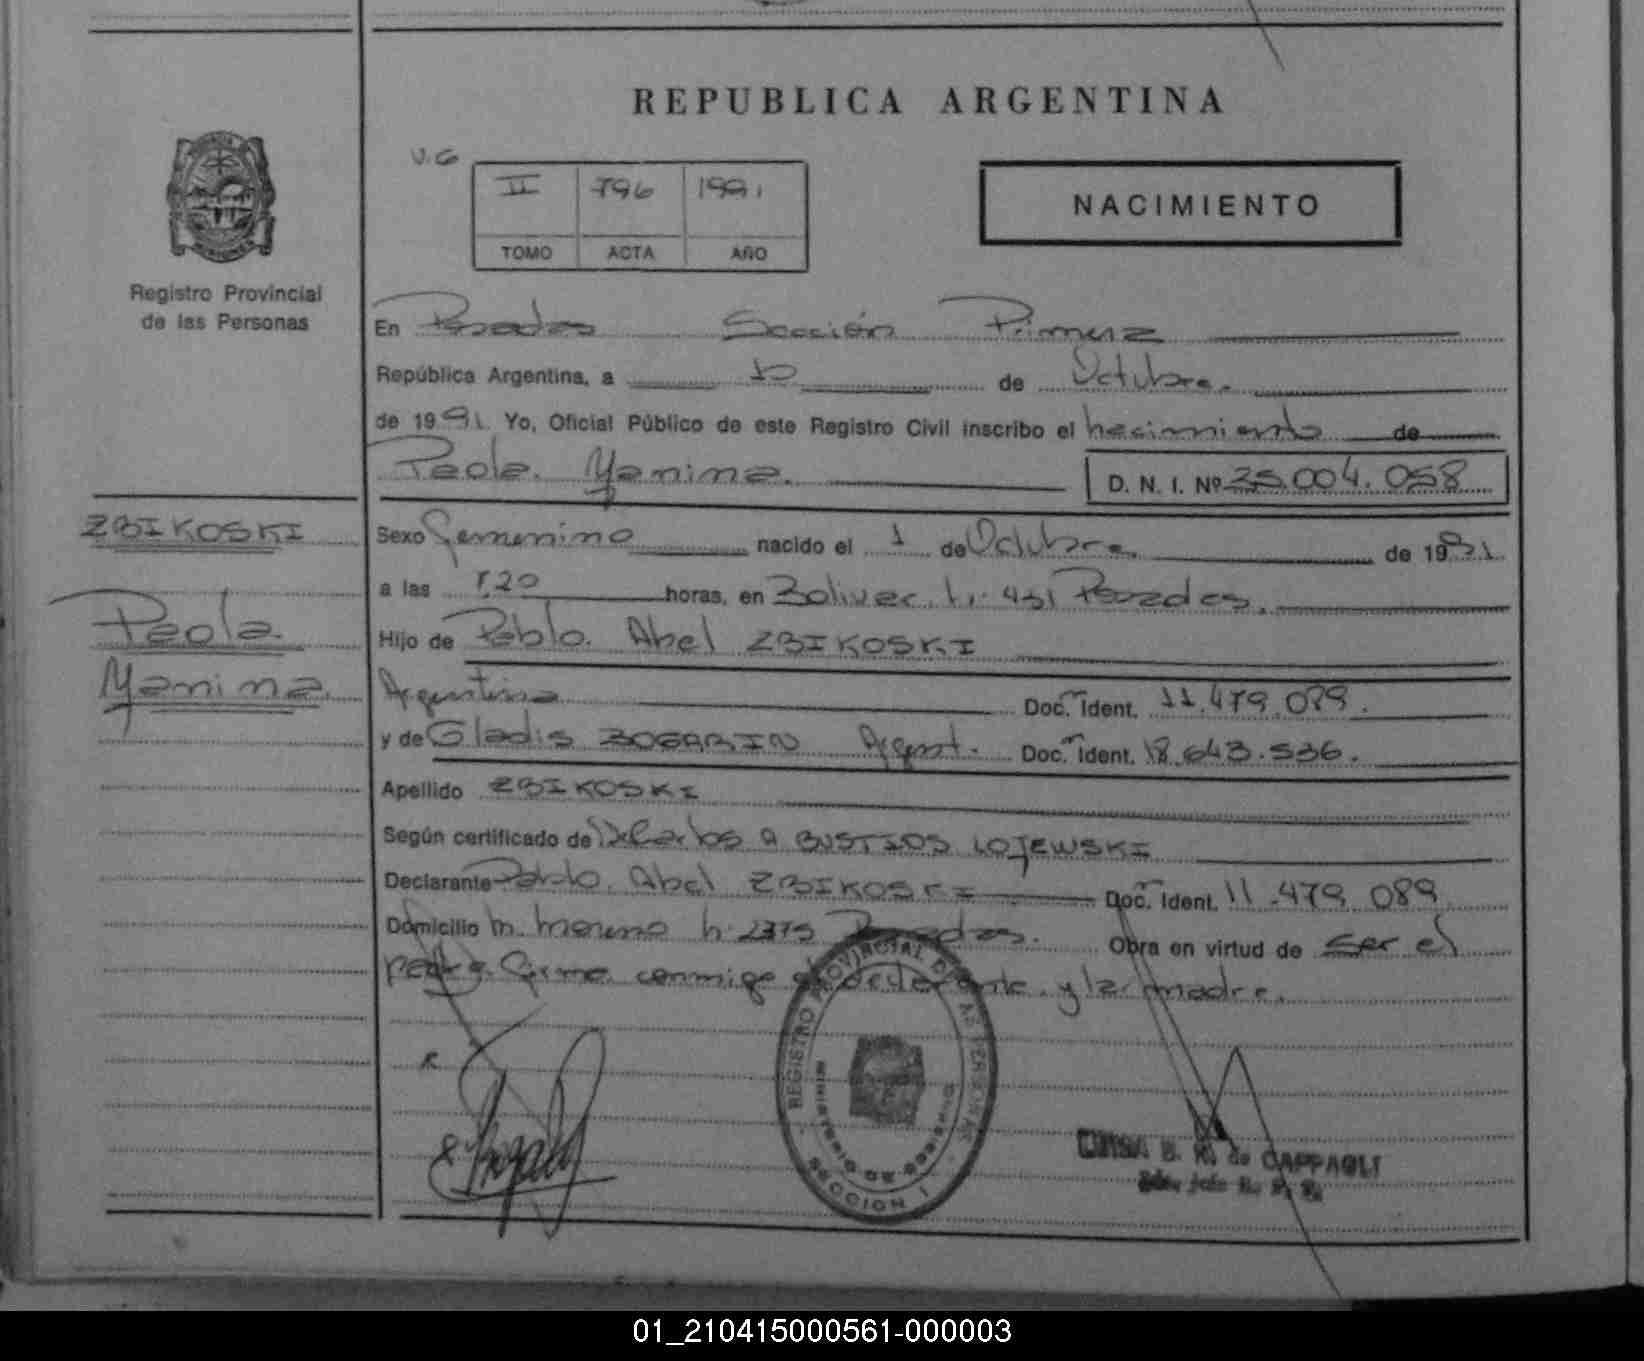 REPUBLICA ARGENTINA
V.G
II 796 1991
TOMO ACTA AÑO
NACIMIENTO
Registro Provincial
de las Personas
En Posadas Sección Primera
República Argentina, a 10 de Octubre.
de 1991. Yo, Oficial Público de este Registro Civil inscribo el nacimiento de
Paola Yanina. D. N. I. Nº 35.004.058
ZBIKOSKI
Paola
Yanina
Sexo Femenino nacido el 1 de Octubre de 1991.
a las 7,20 horas, en Bolivar 431 Posadas.
Hijo de Pablo Abel ZBIKOSKI
Argentina Doc. Ident. 11.479.089.
y de Gladis BOGARIN Argent. Doc. Ident. 18.643.536.
Apellido ZBIKOSKI
Según certificado de BUSTIOS LOJEWSKI
Declarante Pablo Abel ZBIKOSKI Doc. Ident. 11.479.089
Domicilio M. Moreno 2375 Posadas. Obra en virtud de ser el
padre. Firma conmigo el declarante y la madre.
REGISTRO PROVINCIAL DE LAS PERSONAS
MINISTERIO DE GOBIERNO
SECCION 1
B. de CAPPAGLI